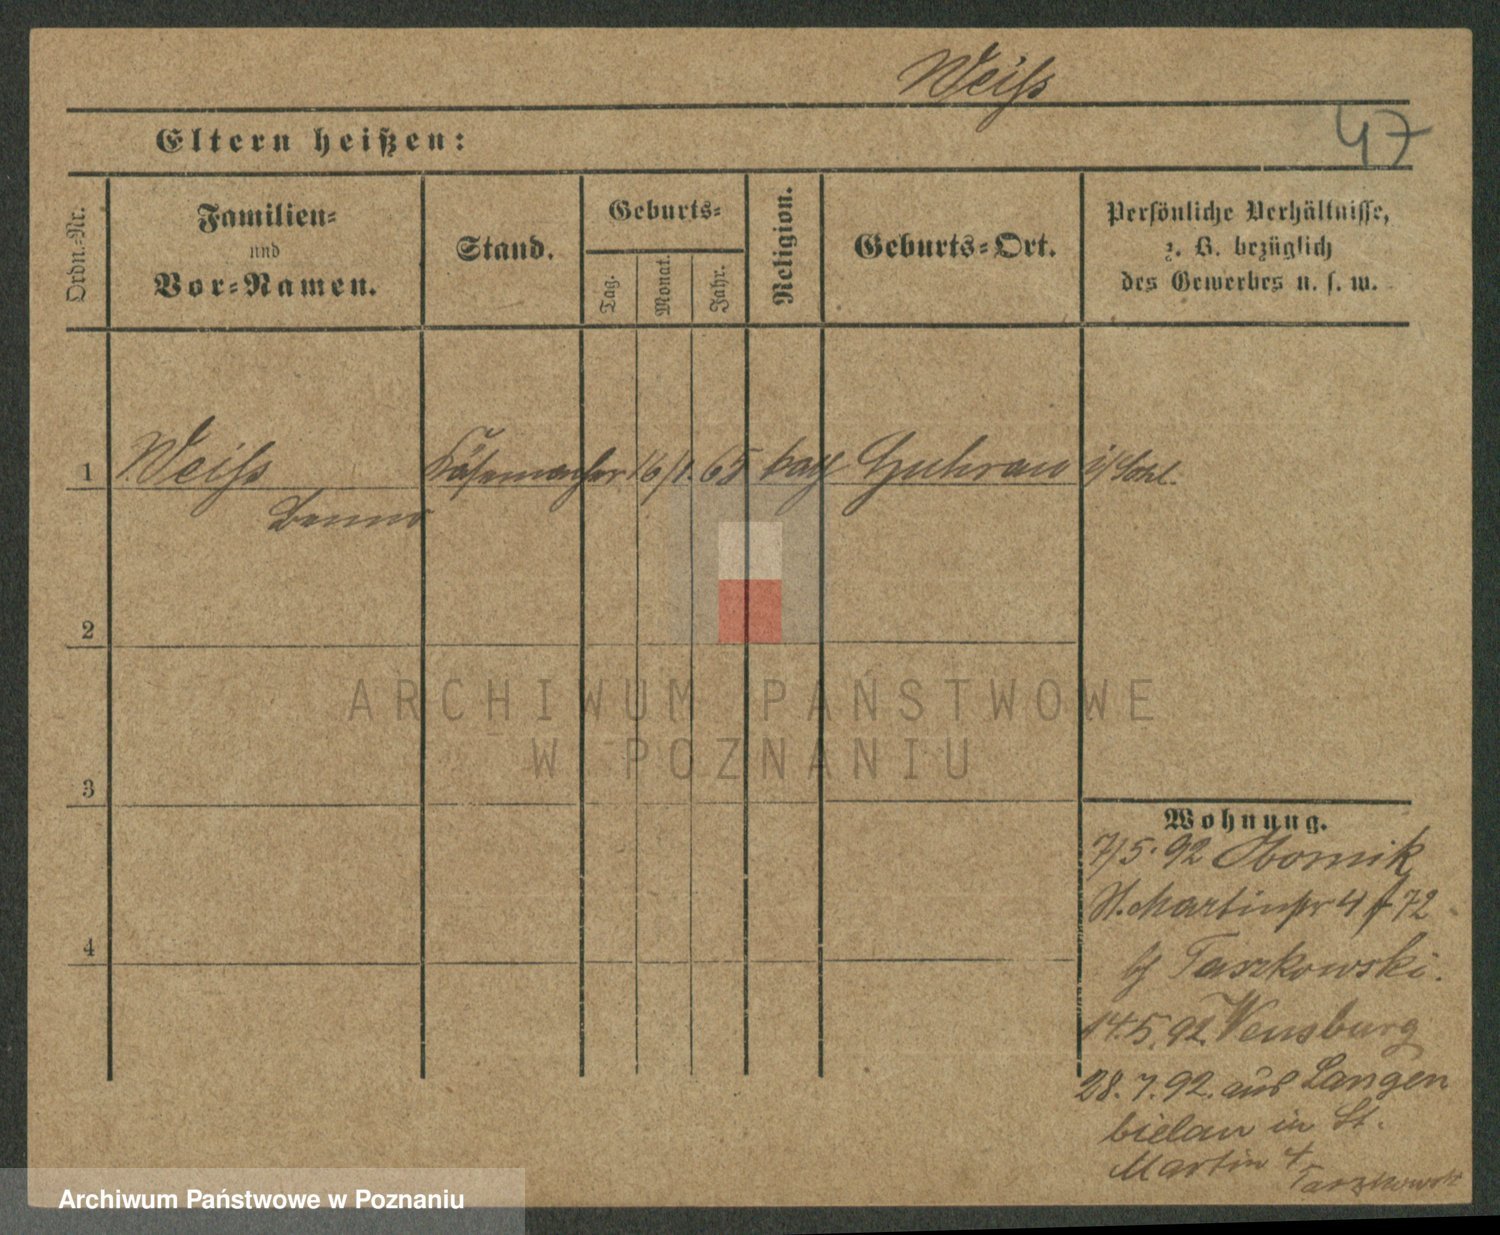 Weiß
47
Eltern heißen:
Ordn.-Nr.
Familien-
und
Vor-Namen.
Stand.
Geburts-
Tag.
Monat.
Jahr.
Religion.
Geburts-Ort.
Persönliche Verhältnisse,
z. B. bezüglich
des Gewerbes u. s. w.
1 Weiß Käsemacher 16/1. 65 kath Guhrau i/Schl.
Benno
2
3
4
ARCHIWUM PAŃSTWOWE
W POZNANIU
Wohnung.
7/5. 92 Obornik
St. Martinstr 4 72
b/ Taszkowski.
14.5.92.
28.7.92. aus Langen
bielau in St.
Martin 4
Taszkowski
Archiwum Państwowe w Poznaniu